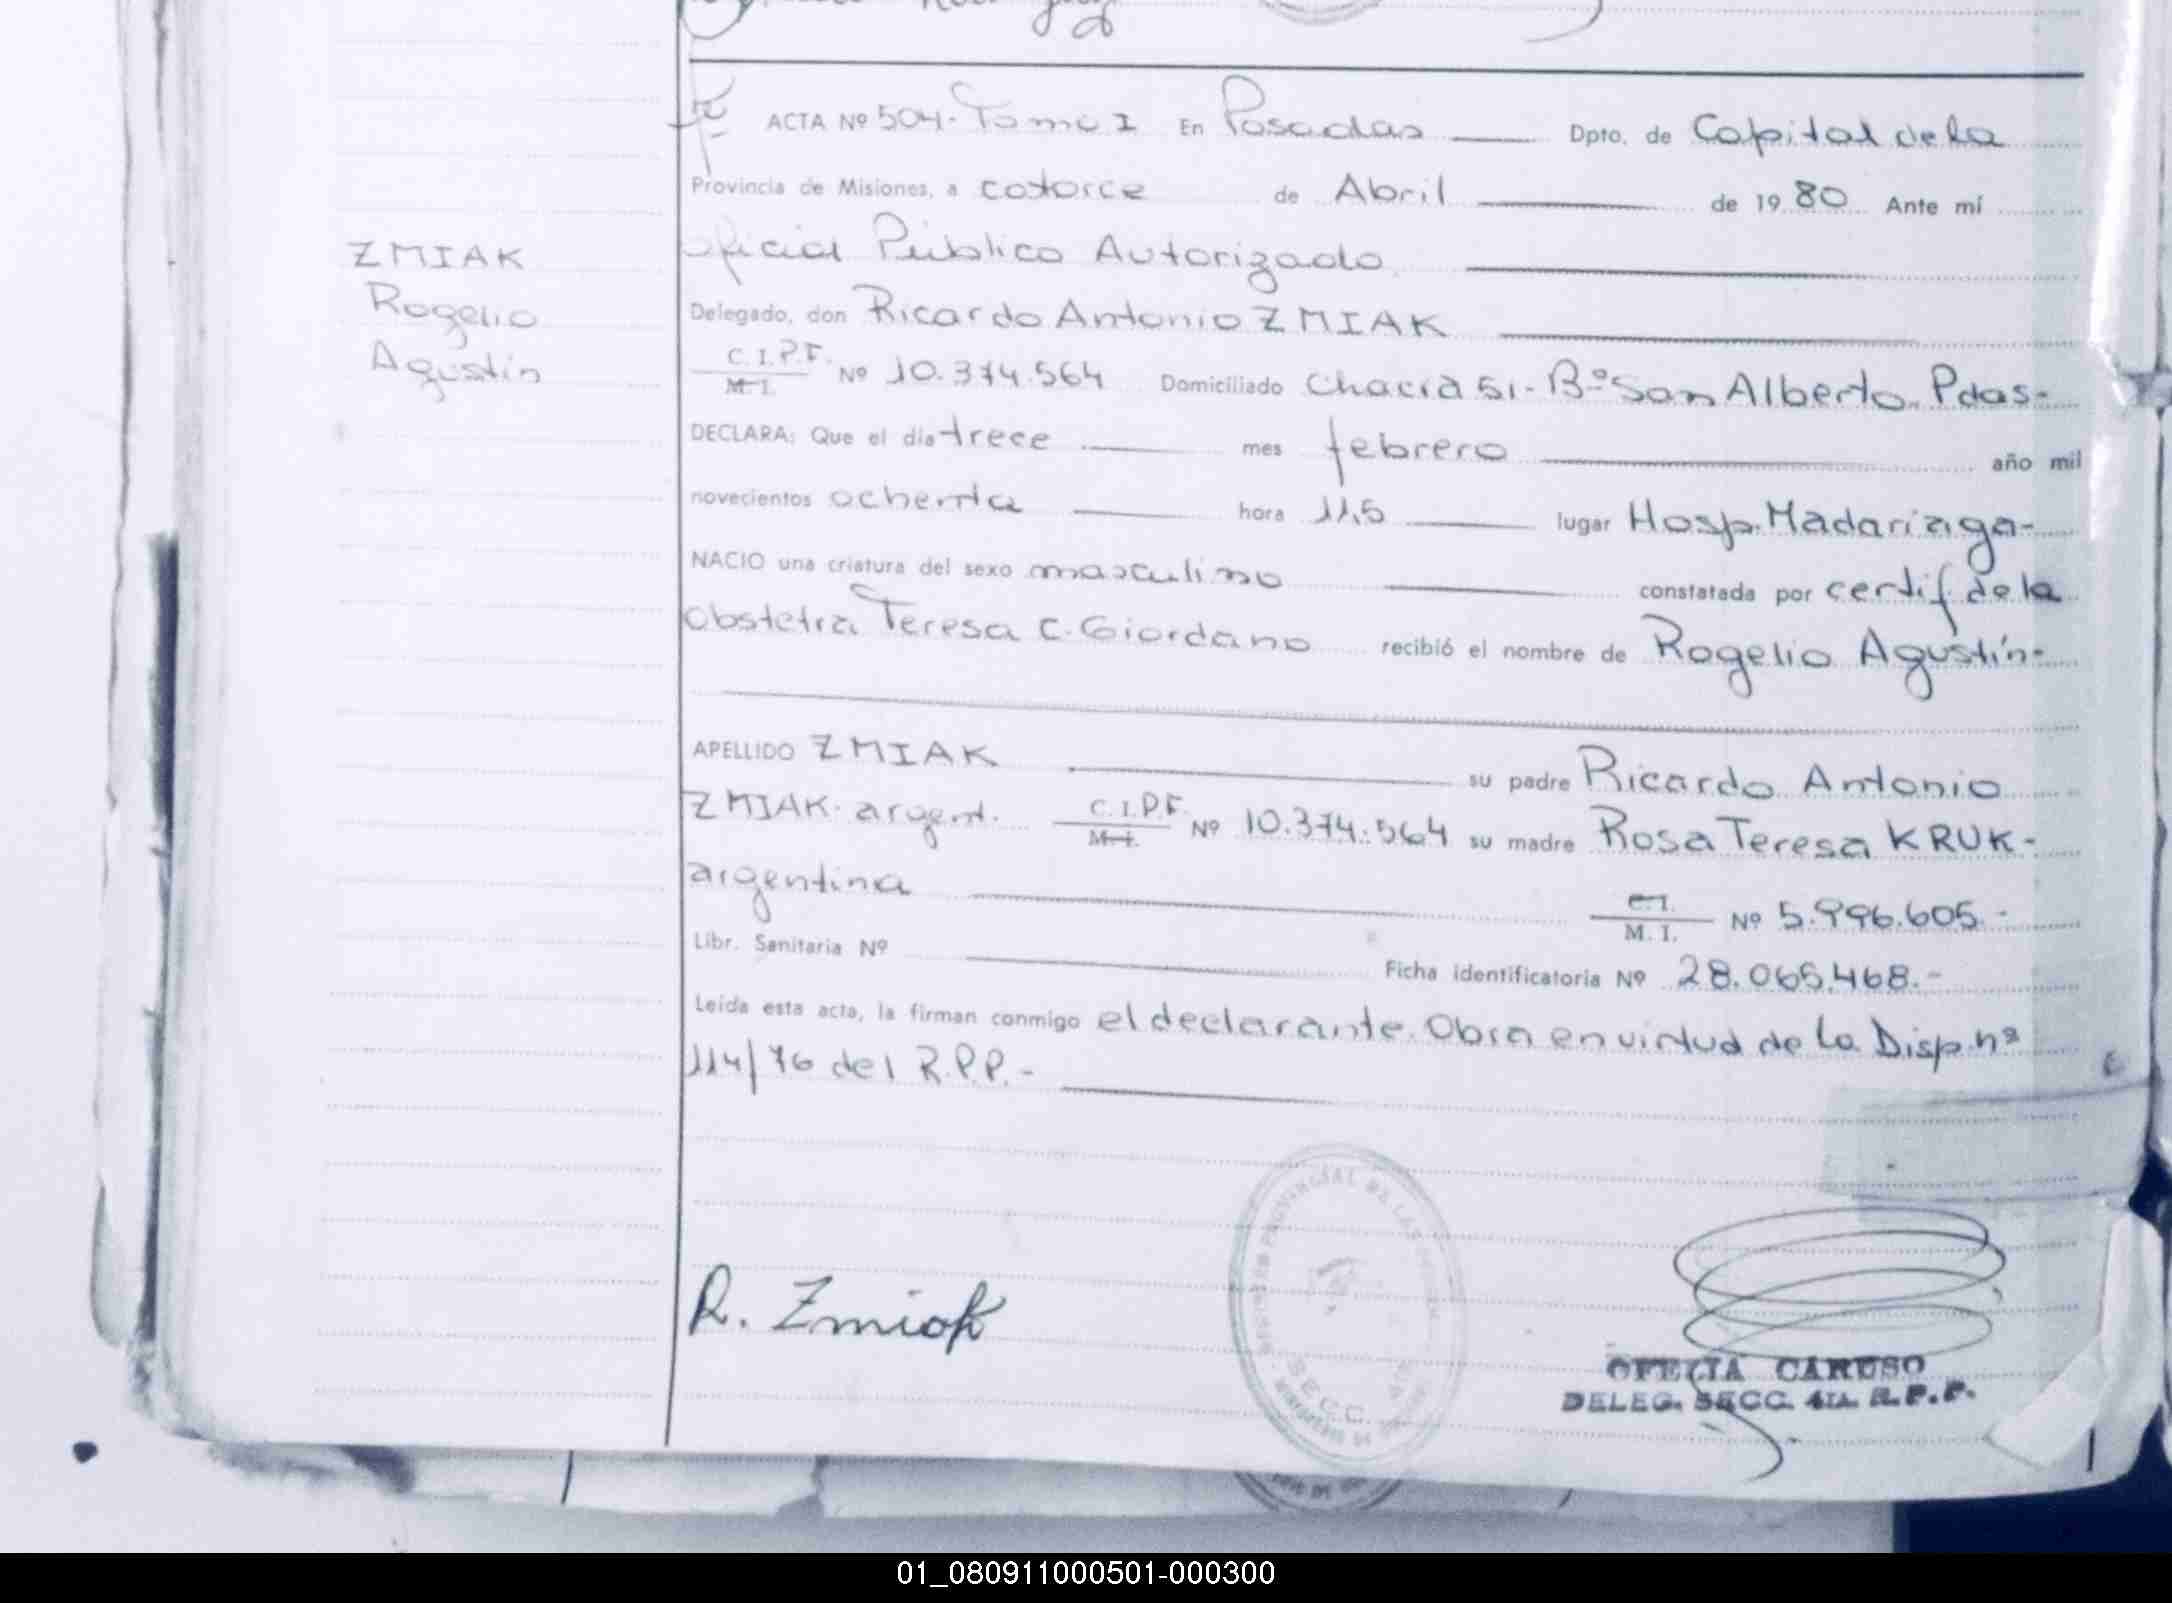 ACTA Nº 504 - Tomo I En Posadas Dpto. de Capital de la
Provincia de Misiones, a catorce de Abril de 1980 Ante mí
oficial Público Autorizado
ZMIAK
Rogelio
Agustín
Delegado, don Ricardo Antonio ZMIAK
C.I.P.F.
M.I. Nº 10.374.564 Domiciliado Chacra 51 - Bº San Alberto. Pdas-
DECLARA: Que el día trece mes febrero año mil
novecientos ochenta hora 11,5 lugar Hosp. Madariaga-
NACIO una criatura del sexo masculino constatada por certif de la
Obstetra Teresa C. Giordano recibió el nombre de Rogelio Agustín-
APELLIDO ZMIAK su padre Ricardo Antonio
ZMIAK- argent. C.I.P.F.
M.I. Nº 10.374.564 su madre Rosa Teresa KRUK-
argentina C.I.
M. I. Nº 5.996.605.-
Libr. Sanitaria Nº Ficha identificatoria Nº 28.065.468.-
Leída esta acta, la firman conmigo el declarante. Obra en virtud de la Disp. nº
114/76 del R.P.P.-
R. Zmiak
SECC.
OFELIA CARUSO
DELEG. SECC. 4ta. R.P.P.
01_080911000501-000300